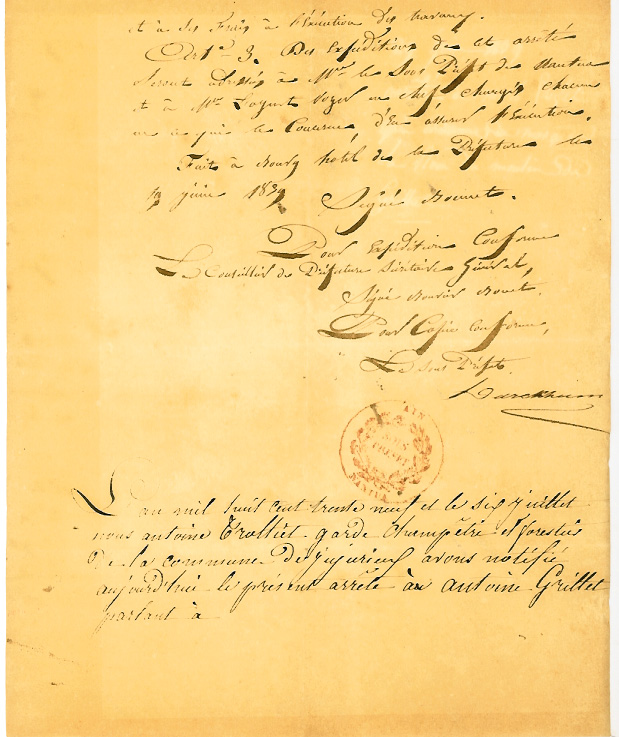 et à ses frais à l'Exécution des travaux.
Art. 3. Des Expéditions de cet arrêté
seront adressés à Mr. le Sous Préfet de Nantua
et à Mr. l'agent voyer en chef chargés chacun
en ce qui le Concerne d'En assurer l'Exécution.
Fait à Bourg hotel de la Préfecture le
juin 1839 Signé Bonnet.
Pour Expédition Conforme
Le Conseiller de Préfecture Secrétaire Général,
Signé
Pour Copie Conforme,
Le Sous Préfet.
AIN
SOUS
PREFET
NANTUA
L'an mil huit cent trente neuf et le six juillet
nous antoine Trolliet garde champêtre et forestier
de la commune de jujurieux avons notifié
aujourd'hui le présent arrêté au antoine Grillet
parlant à